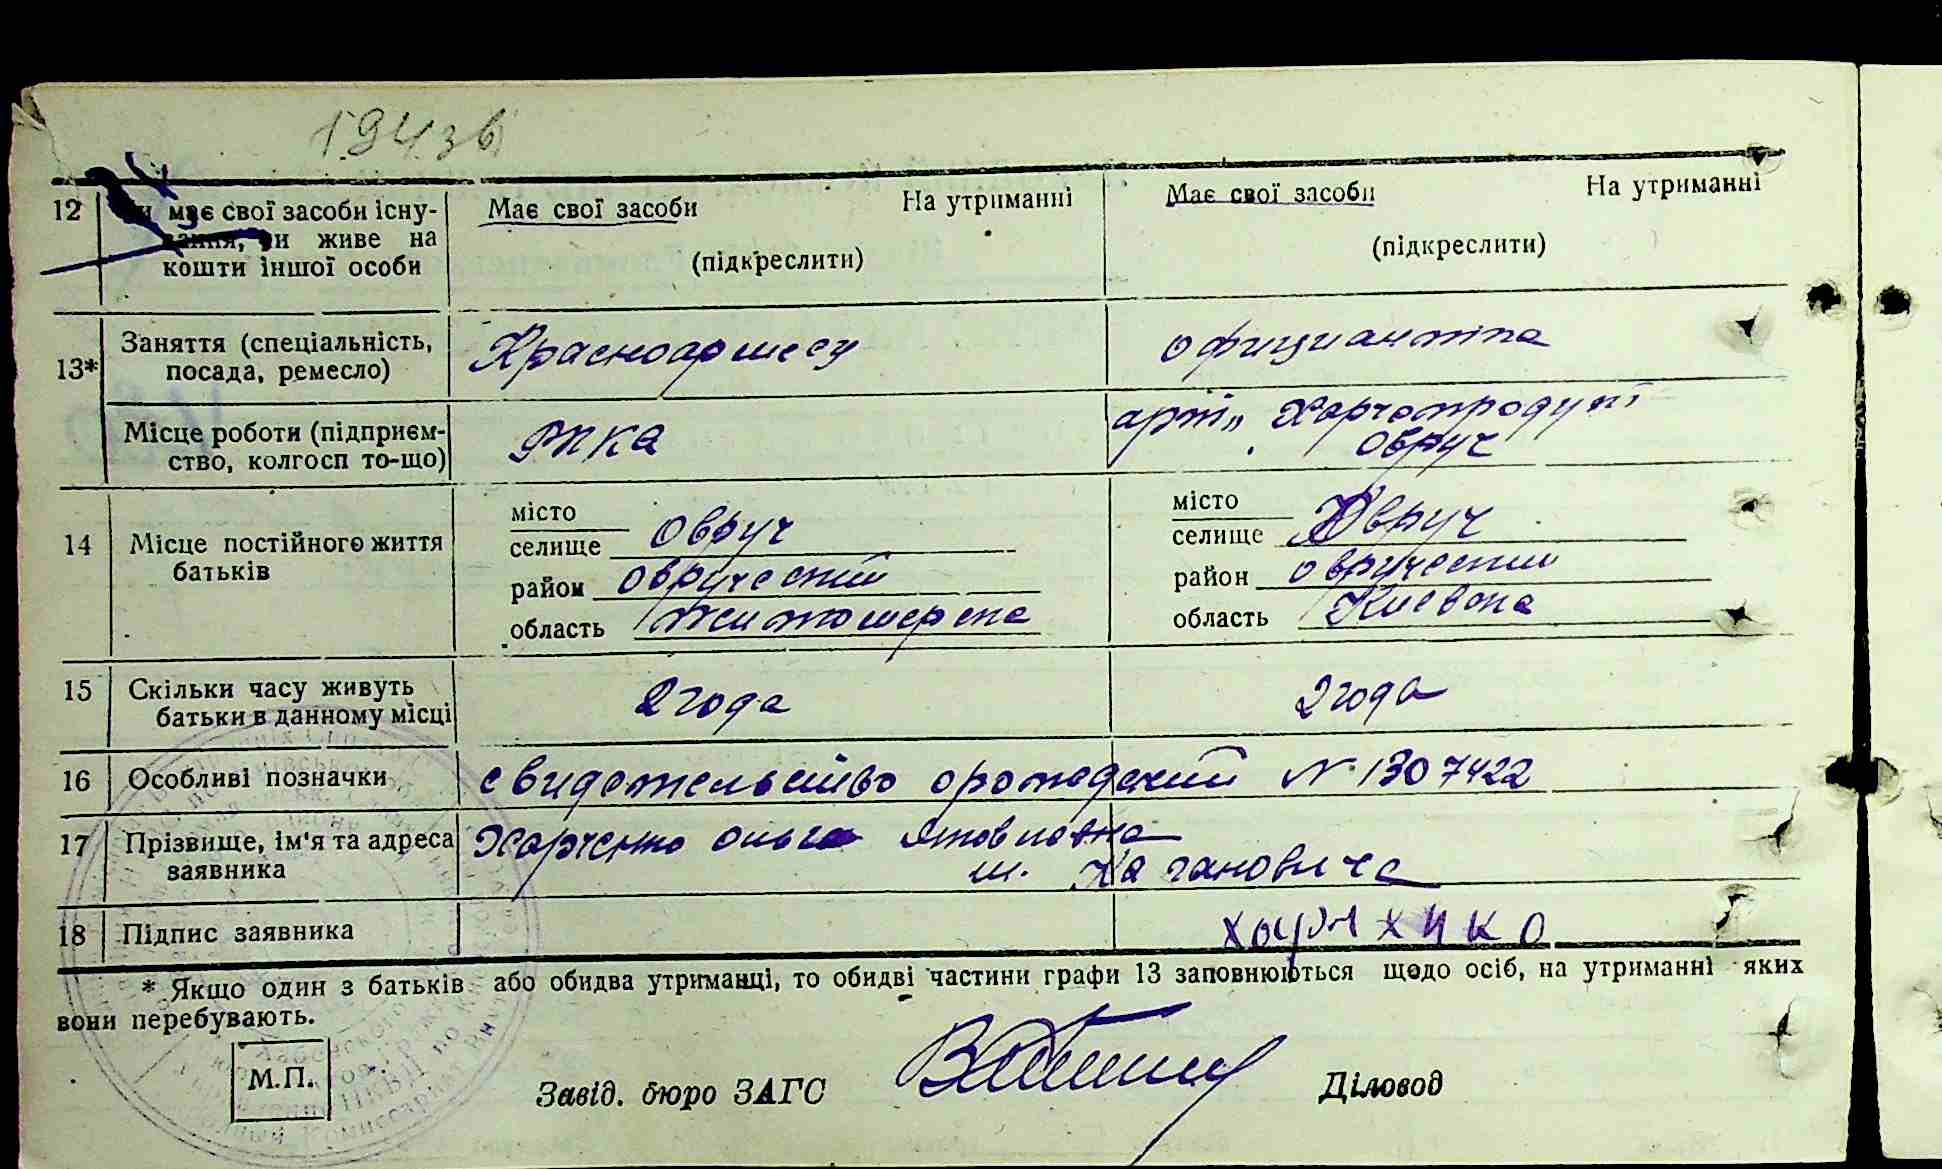 12 має свої засоби існу- Має свої засоби На утриманні Має свої засоби На утриманні
вання, чи живе на (підкреслити) (підкреслити)
кошти іншої особи
13* Заняття (спеціальність, посада, ремесло) Красноармеец официантка
Місце роботи (підприєм- РККА арт." Харчепродукт
ство, колгосп то-що) Овруч
14 Місце постійного життя батьків
місто місто
селище Овруч селище Овруч
район овручский район овручский
область область Киевская
15 Скільки часу живуть 2 года 2 года
батьки в данному місці
16 Особливі позначки свидетельство о рождений № 1307422
17 Прізвище, ім'я та адреса Харченко Ольга
заявника Кагановича
18 Підпис заявника
* Якщо один з батьків або обидва утриманці, то обидві частини графи 13 заповнюються щодо осіб, на утриманні яких
вони перебувають.
М.П.
Завід. бюро ЗАГС Діловод